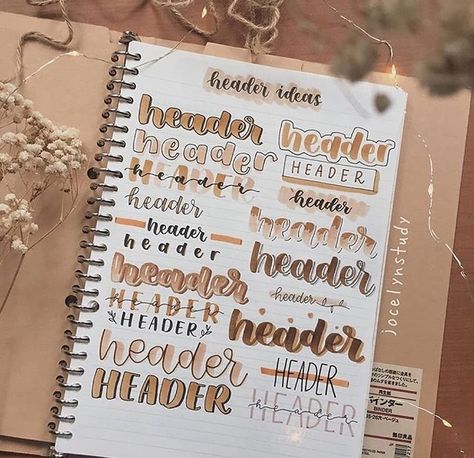 header ideas
header
header
HEADER
header
header
header
header
header
HEADER
header
HEADER
header
HEADER
header
HEADER
header
header
header
header
header
HEADER
HEADER
header
jocelynstudy
バインダー
BINDER
無印良品